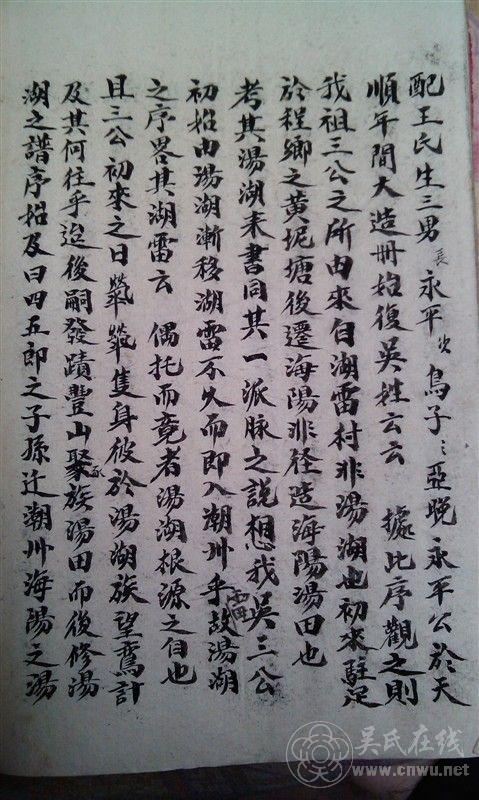 配王氏生三男 長 永平 次 烏子 三 亞晚 永平公於天
順年間大造冊始復吳姓云云 據此序觀之則
我祖三公之所由來自湖雷村非湯湖也初來駐足
於程鄉之黃坭塘後遷海陽非徑造海陽湯田也
考其湯湖來書同其一派脉之說想我吳三公
初招由湯湖漸移湖雷不久而即入潮州乎故湯湖
之序畧其湖雷云 偶托而竟者湯湖根源之自也
且三公初來之日煢煢隻身彼於湯湖族望焉計
及其何往乎迨後嗣發蹟豐山聚族湯田而後修湯
湖之譜序招及曰四五郎之子孫迁潮州海陽之湯
吳氏在线
www.cnwu.net